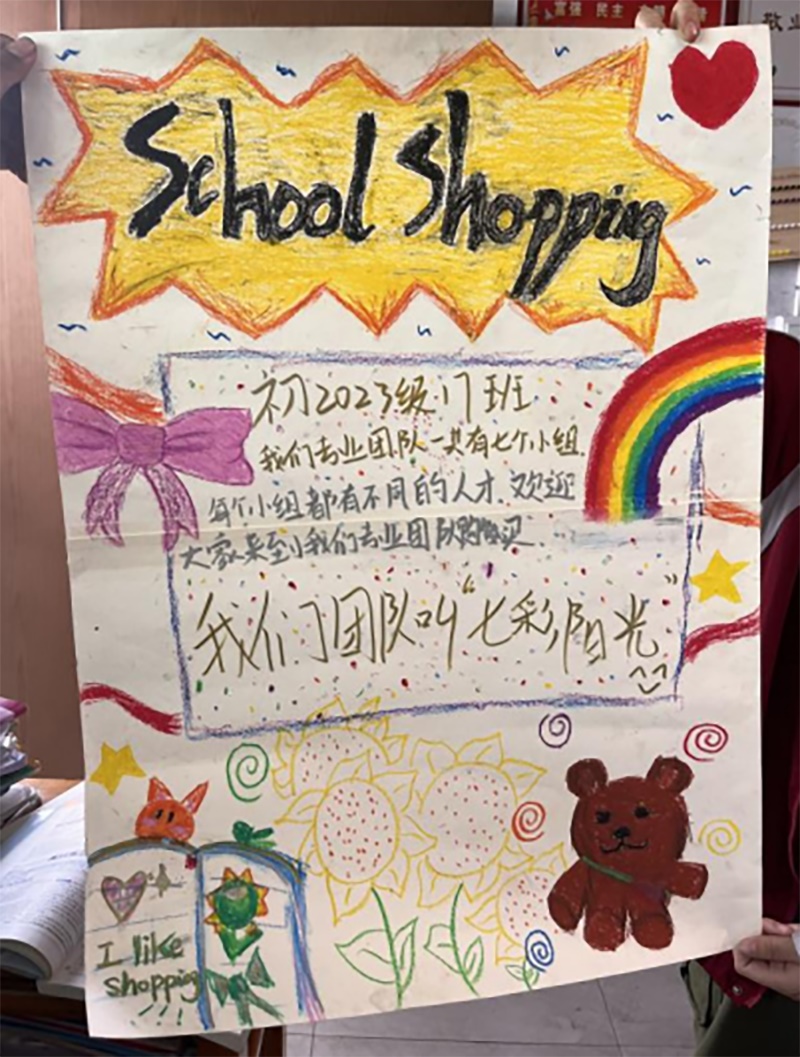 富强 民主
敬业
School Shopping
初2023级17班
我们专业团队一共有七个小组.
每个小组都有不同的人才.欢迎
大家来到我们专业团队购
我们团队叫“七彩阳光”
I like
shopping